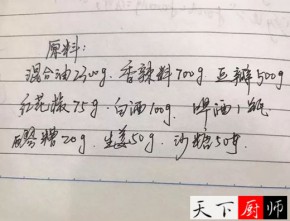 原料:
混合油2300g. 香辣料700g. 豆瓣500g
红花椒75g. 白酒100g. 啤酒1瓶
醪糟20g. 生姜50g. 沙糖50g.
天下厨师